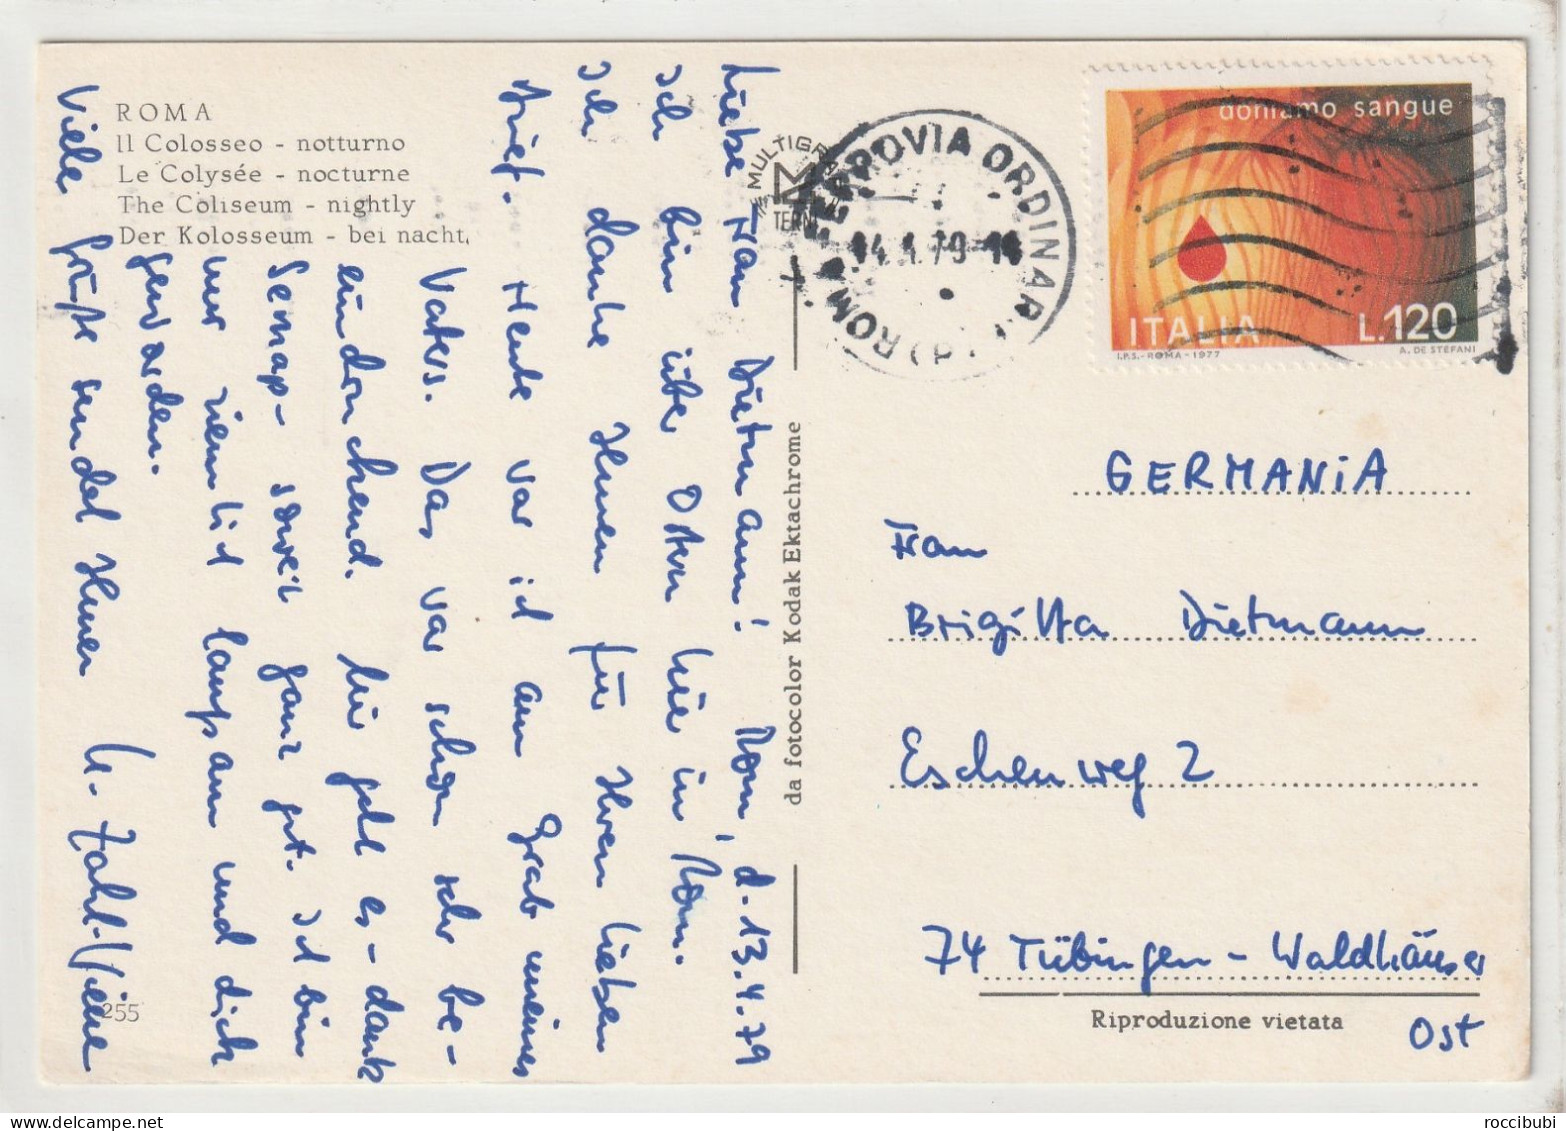 ROMA
Il Colosseo - notturno
Le Colysée - nocturne
The Coliseum - nightly
Der Kolosseum - bei nacht.
Liebe Frau Dietmann! Rom, d. 13.4.79
Ich bin über Ostern hier in Rom.
Ich danke Ihnen für Ihren lieben
Brief. Heute war ich am Grab meines
Vaters. Das war schon sehr be-
eindruckend. Mir geht es - dank
- soweit ganz gut. Ich bin
nur ziemlich langsam und dick
geworden.
Viele Grüße sendet Ihnen U.
255
da fotocolor Kodak Ektachrome
MULTIGRA
TERNI
FERROVIA ORDINAR
ROMA
14.4.79-14
doniamo sangue
ITALIA L.120
I.P.S.-ROMA-1977 A. DE STEFANI
GERMANIA
Frau
Brigitta Dietmann
Eschenweg 2
74 Tübingen - Waldhäuser
Ost
Riproduzione vietata
roccibubi